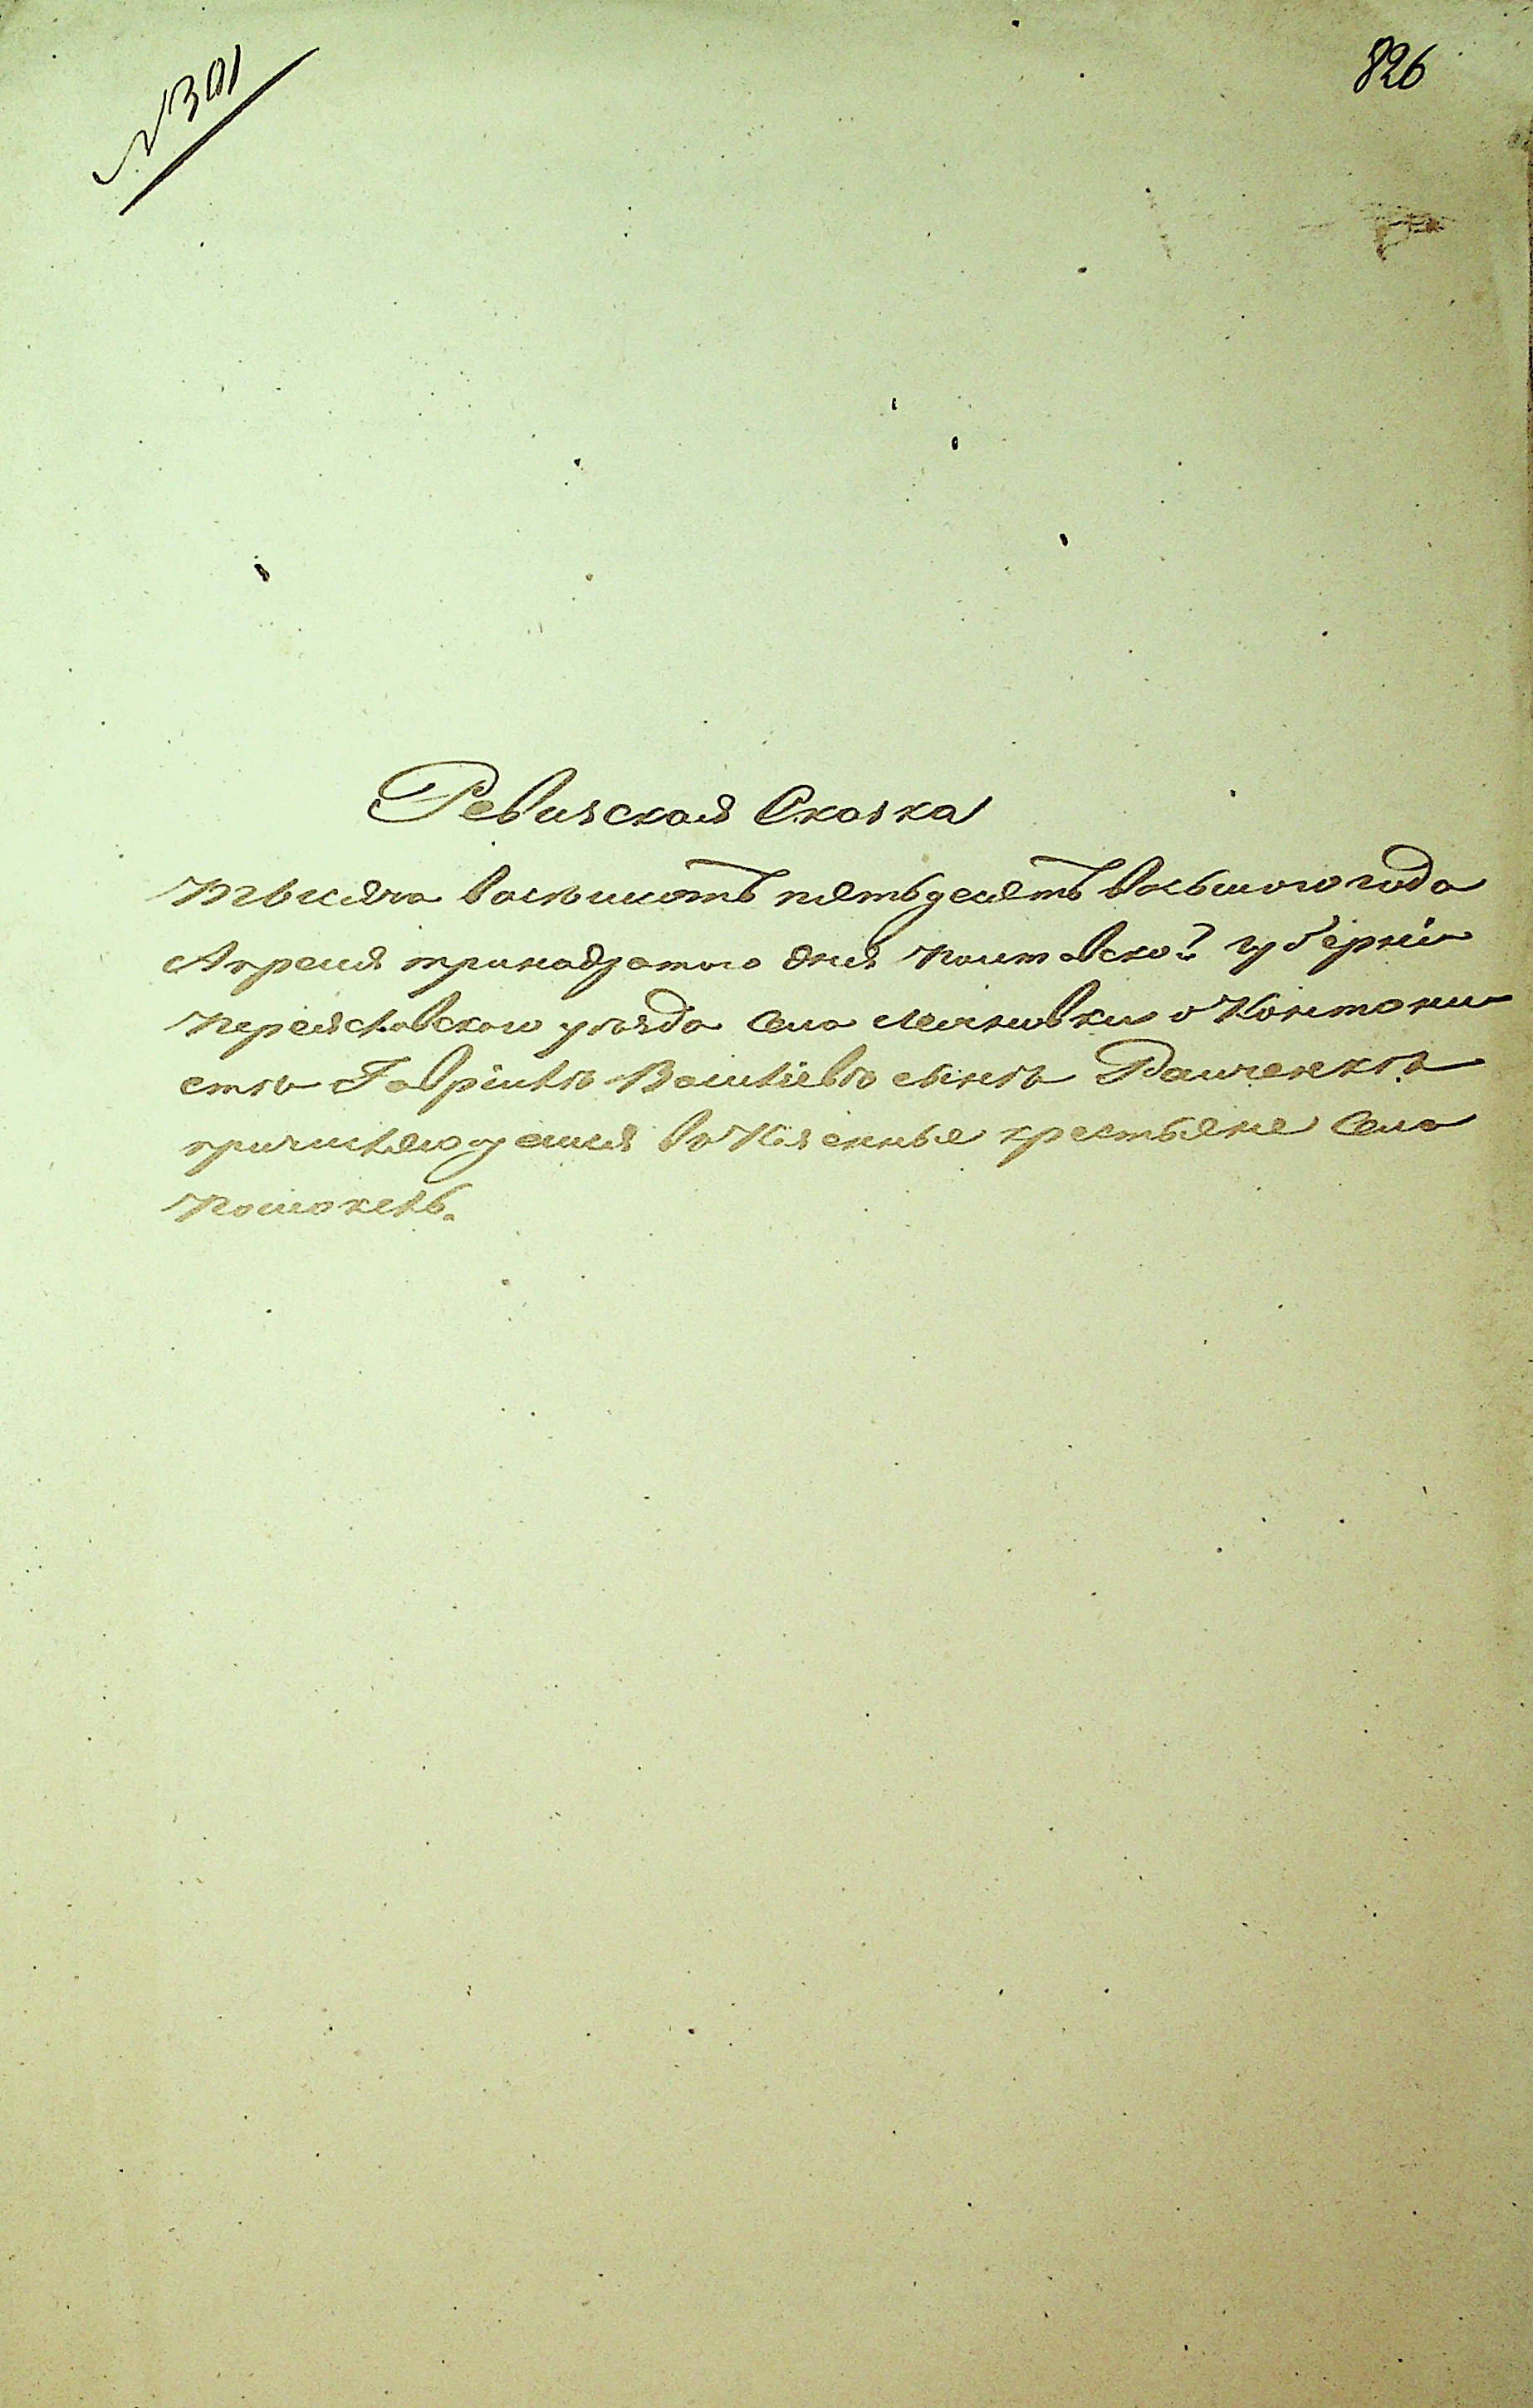 № 301
826
Ревизская Сказка
Тысяча восемьсотъ пятьдесятъ восьмого года
Апреля тринадцатого дня Полтавской губерніи
Переяславскаго уѣзда Села о Кантони
стѣ Гаврiилѣ Василіевѣ сынѣ
причисляющемся въ Казенные крестьяне Села